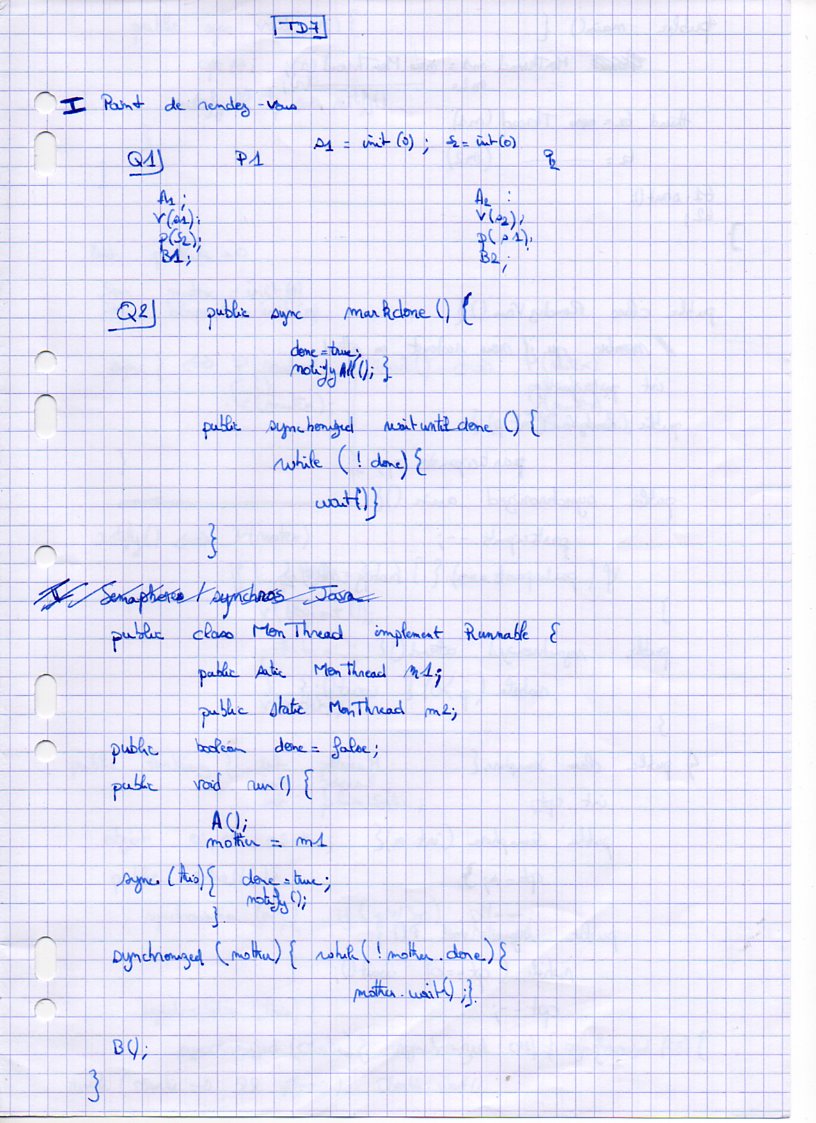 TD7
I Point de rendez-vous
Q1) P1 s1 = init (0) ; s2 = init (0) P2
A1 ; A2 :
V(s1); V(s2);
P(s2); P(s1);
B1 ; B2 ;
Q2) public sync markdone () {
done = true;
notifyAll(); }
public synchronized waituntil done () {
while ( ! done) {
wait()}
}
I Semaphores / synchros Java
public class MonThread implement Runnable {
public satic MonThread m1;
public static MonThread m2;
public boolean done = false;
public void run() {
A();
mother = m1
sync. (this) { done = true;
notify();
}.
synchronized ( mother) { while ( ! mother . done) {
mother . wait() ; }.
B();
}